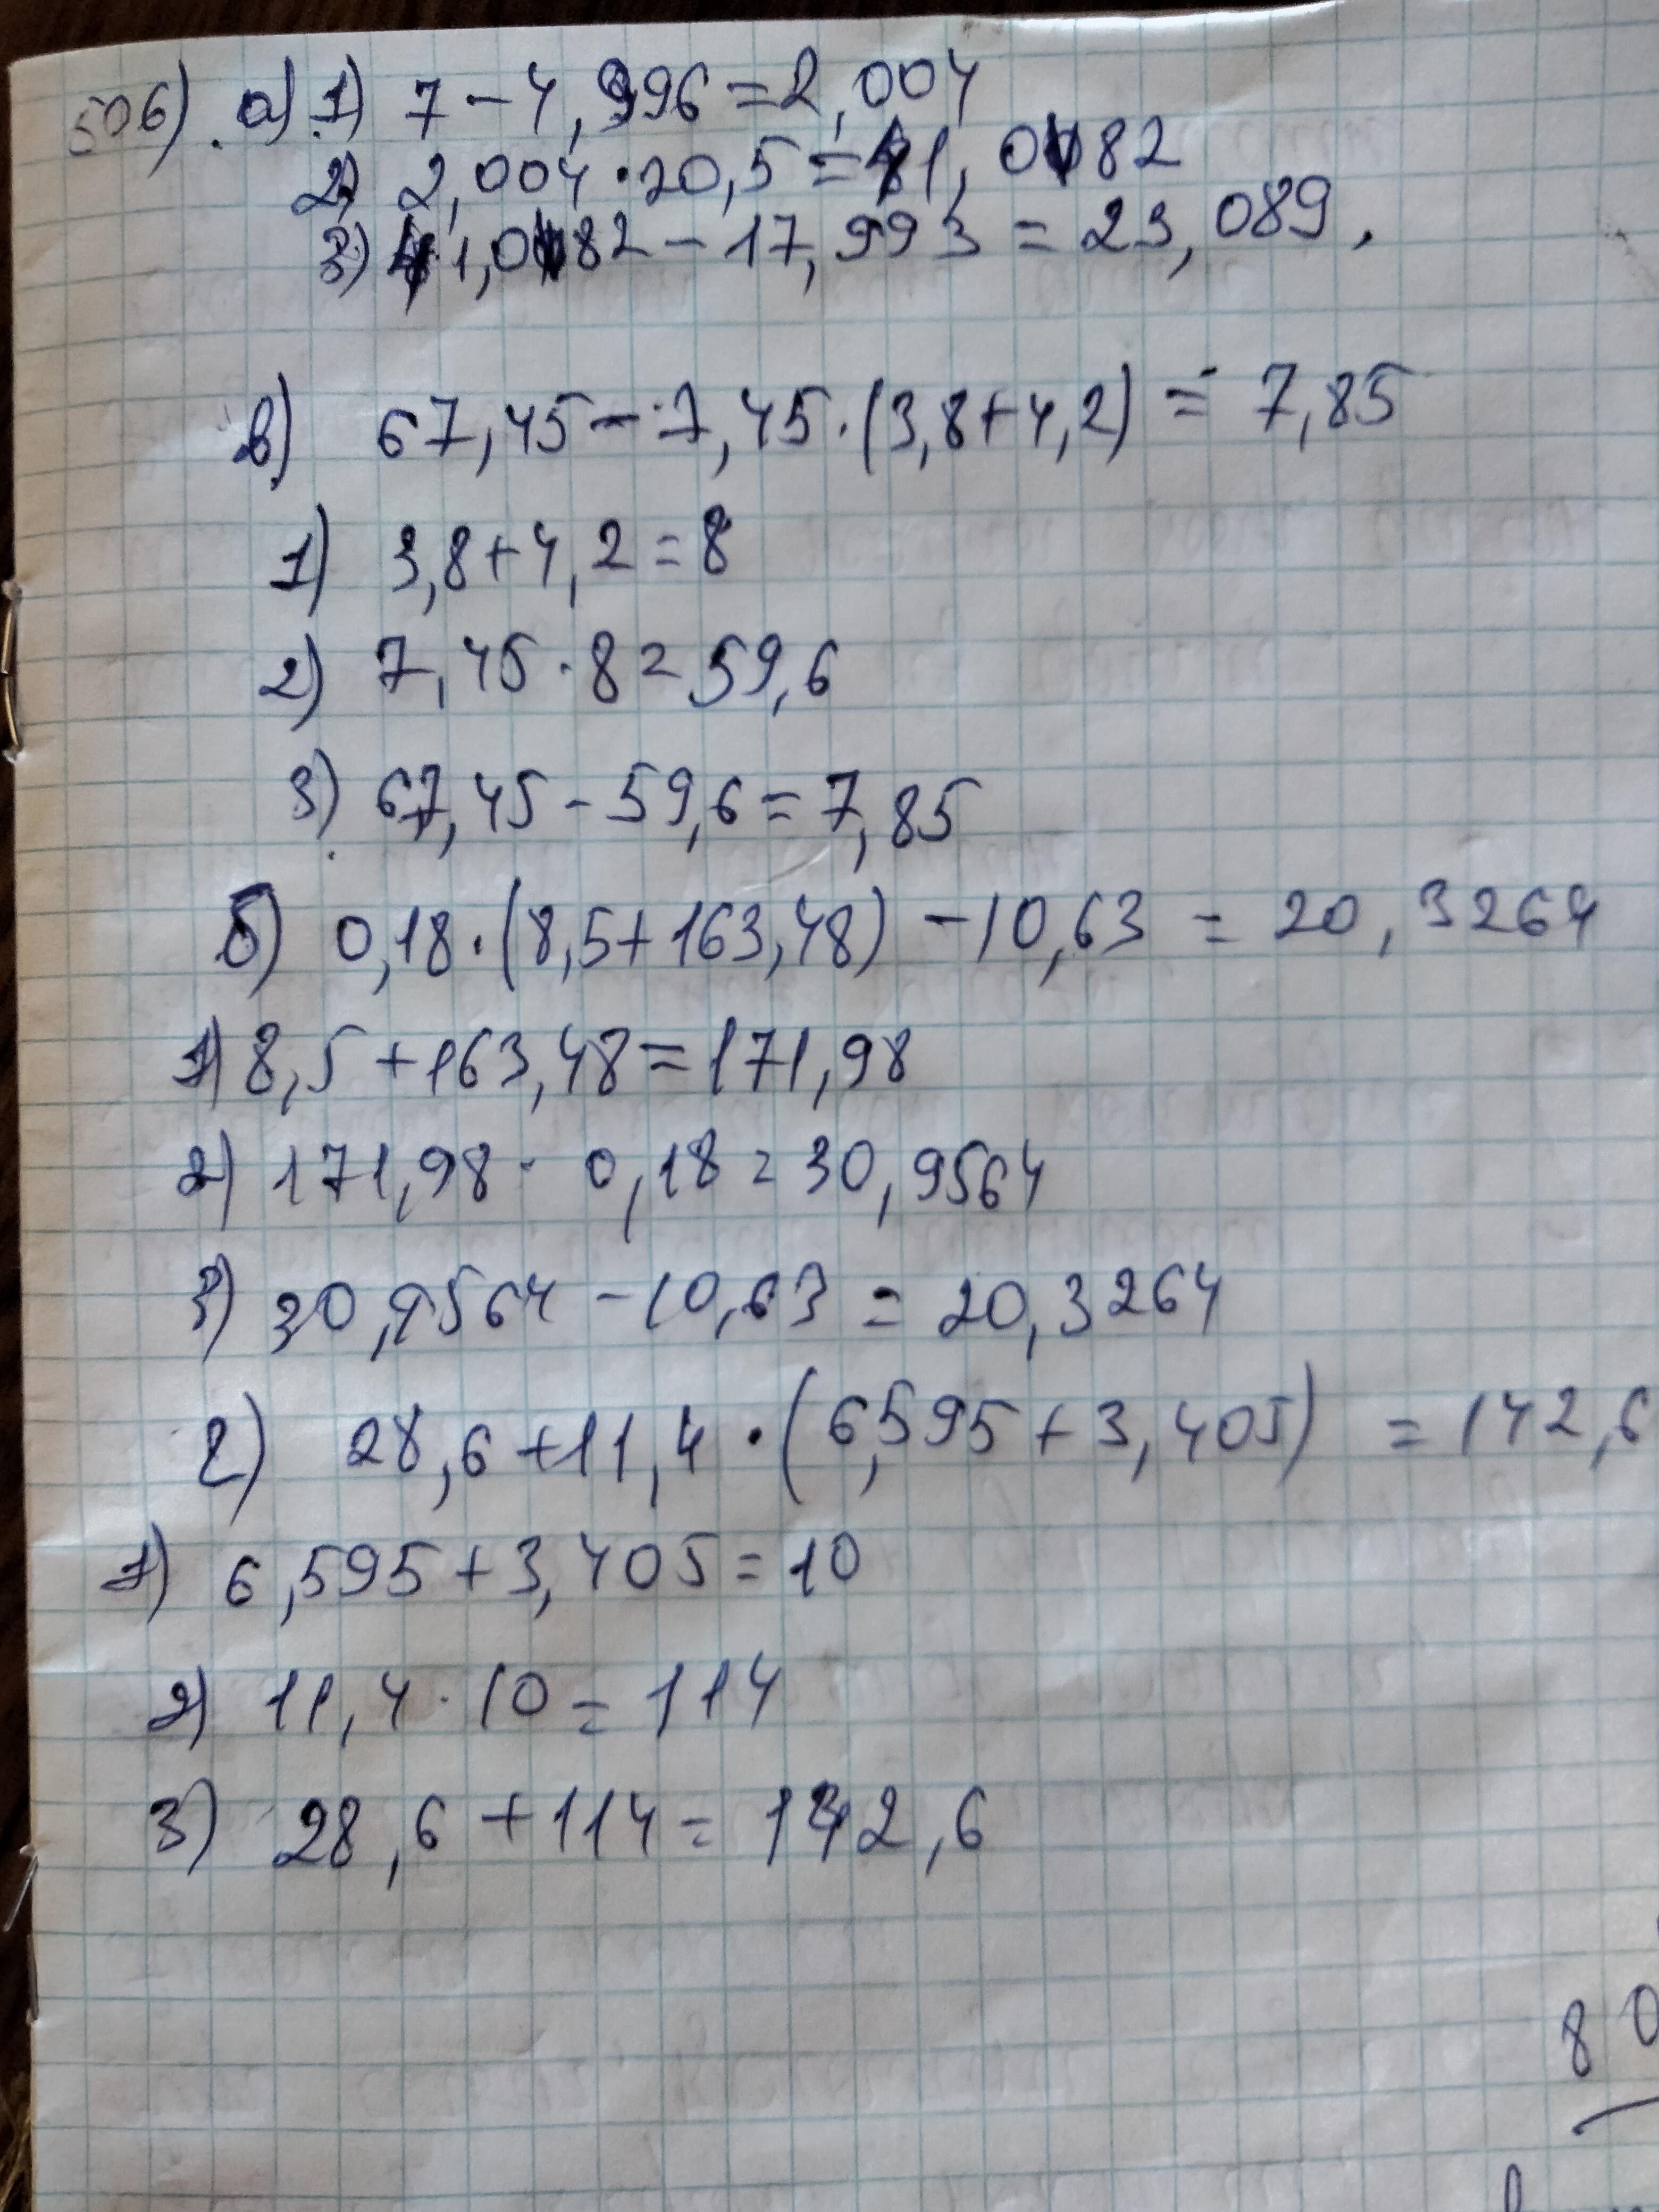 506) а) 1) 7 - 4,996 = 2,004
2) 2,004 · 20,5 = 41,082
3) 41,082 - 17,993 = 23,089.
в) 67,45 - 7,45 · (3,8 + 4,2) = 7,85
1) 3,8 + 4,2 = 8
2) 7,45 · 8 = 59,6
3) 67,45 - 59,6 = 7,85
б) 0,18 · (8,5 + 163,48) - 10,63 = 20,3264
1) 8,5 + 163,48 = 171,98
2) 171,98 · 0,18 = 30,9564
3) 30,9564 - 10,63 = 20,3264
г) 28,6 + 11,4 · (6,595 + 3,405) = 142,6
1) 6,595 + 3,405 = 10
2) 11,4 · 10 = 114
3) 28,6 + 114 = 142,6
80